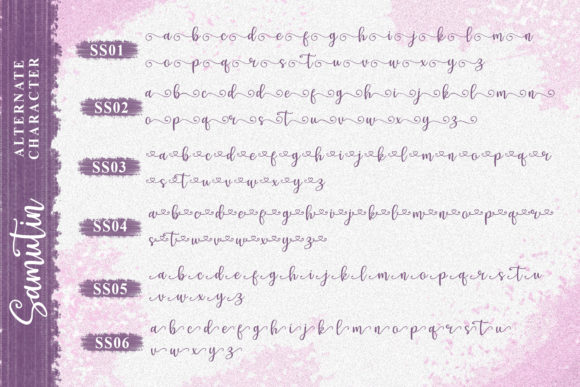 ALTERNATE
CHARACTER
Samutin
SS01
a b c d e f g h i j k l m n
o p q r s t u v w x y z
SS02
a b c d e f g h i j k l m n
o p q r s t u v w x y z
SS03
a b c d e f g h i j k l m n o p q r
s t u v w x y z
SS04
a b c d e f g h i j k l m n o p q r
s t u v w x y z
SS05
a b c d e f g h i j k l m n o p q r s t u
v w x y z
SS06
a b c d e f g h i j k l m n o p q r s t u
v w x y z